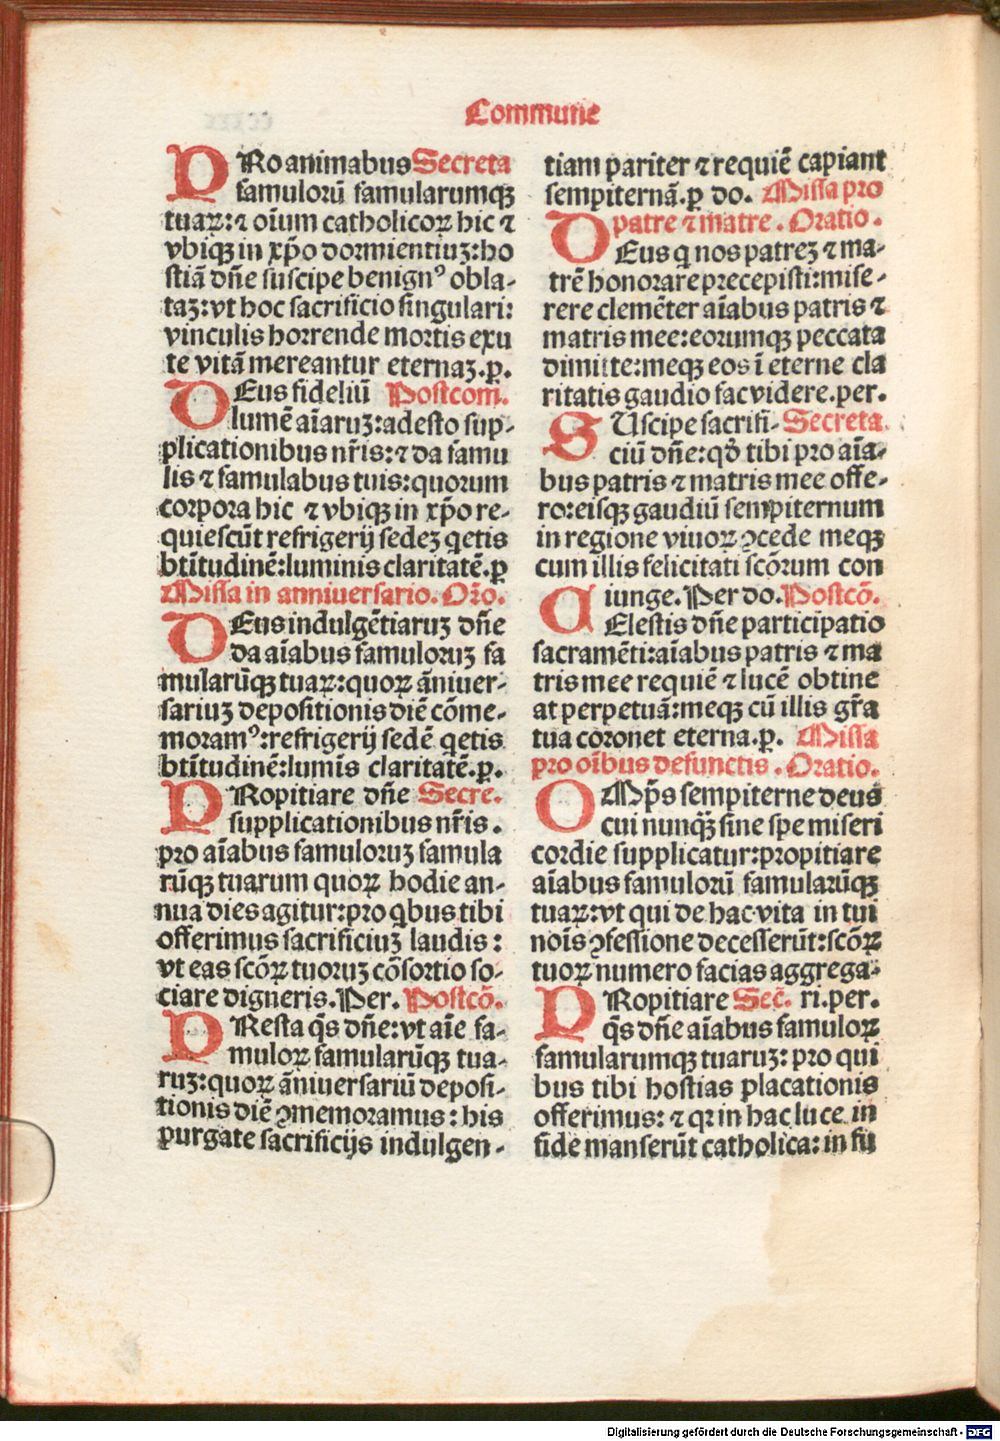 Commune
PRo animabus Secreta
famulorū famularumqꝫ
tuaꝝ: ⁊ oīum catholicoꝝ hic ⁊
vbiqꝫ in xp̄o dormientiuꝫ: ho
stiā dn̄e suscipe benignꝰ obla-
taꝫ: vt hoc sacrificio singulari:
vinculis horrende mortis exu
te vitā mereantur eternaꝫ. p.
DEus fideliū Postcom.
lumē aīaruꝫ: adesto sup-
plicationibus nr̄is: ⁊ da famu
lis ⁊ famulabus tuis: quorum
corpora hic ⁊ vbiqꝫ in xp̄o re-
quiescūt refrigerij sedeꝫ qetis
btītudinē: luminis claritatē. p
Missa in anniuersario. Or̄o.
DEus indulgētiaruꝫ dn̄e
da aīabus famuloruꝫ fa
mularūqꝫ tuaꝝ: quoꝝ āniuer-
sariuꝫ depositionis diē cōme-
moramꝰ: refrigerij sedē qetis
btītudinē: lumīs claritatē. p.
PRopitiare dn̄e Secre.
supplicationibus nr̄is.
pro aīabus famuloruꝫ famula
rūqꝫ tuarum quoꝝ hodie an-
nua dies agitur: pro qbus tibi
offerimus sacrificiuꝫ laudis:
vt eas scōꝝ tuoruꝫ cōsortio so-
ciare digneris. Per. Postcō.
PResta q̄s dn̄e: vt aīe fa-
muloꝝ famularūqꝫ tua-
ruꝫ: quoꝝ āniuersariū deposi-
tionis diē ꝯmemoramus: his
purgate sacrificijs indulgen-
tiam pariter ⁊ requiē capiant
sempiternā. p do. Missa pro
patre ⁊ matre. Oratio.
DEus q nos patreꝫ ⁊ ma-
trē honorare precepisti: mise-
rere clemēter aīabus patris ⁊
matris mee: eorumqꝫ peccata
dimitte: meqꝫ eos ī eterne cla
ritatis gaudio fac videre. per.
SUscipe sacrifi- Secreta.
ciū dn̄e: qd̄ tibi pro aīa-
bus patris ⁊ matris mee offe-
ro: eisqꝫ gaudiū sempiternum
in regione viuoꝝ ꝯcede meqꝫ
cum illis felicitati scōrum con
iunge. Per do. Postcō.
CElestis dn̄e participatio
sacramēti: aīabus patris ⁊ ma
tris mee requiē ⁊ lucē obtine
at perpetuā: meqꝫ cū illis gr̄a
tua coronet eterna. p. Missa
pro oībus defunctis. Oratio.
OMp̄s sempiterne deus
cui nunqꝫ̄ sine spe miseri
cordie supplicatur: propitiare
aīabus famulorū famularūqꝫ
tuaꝝ: vt qui de hac vita in tui
noīs ꝯfessione decesserūt: scōꝝ
tuoꝝ numero facias aggrega-
PRopitiare Sec̄. ri. per.
q̄s dn̄e aīabus famuloꝝ
famularumqꝫ tuaruꝫ: pro qui
bus tibi hostias placationis
offerimus: ⁊ qꝛ in hac luce in
fide manserūt catholica: in fu
Digitalisierung gefördert durch die Deutsche Forschungsgemeinschaft - DFG